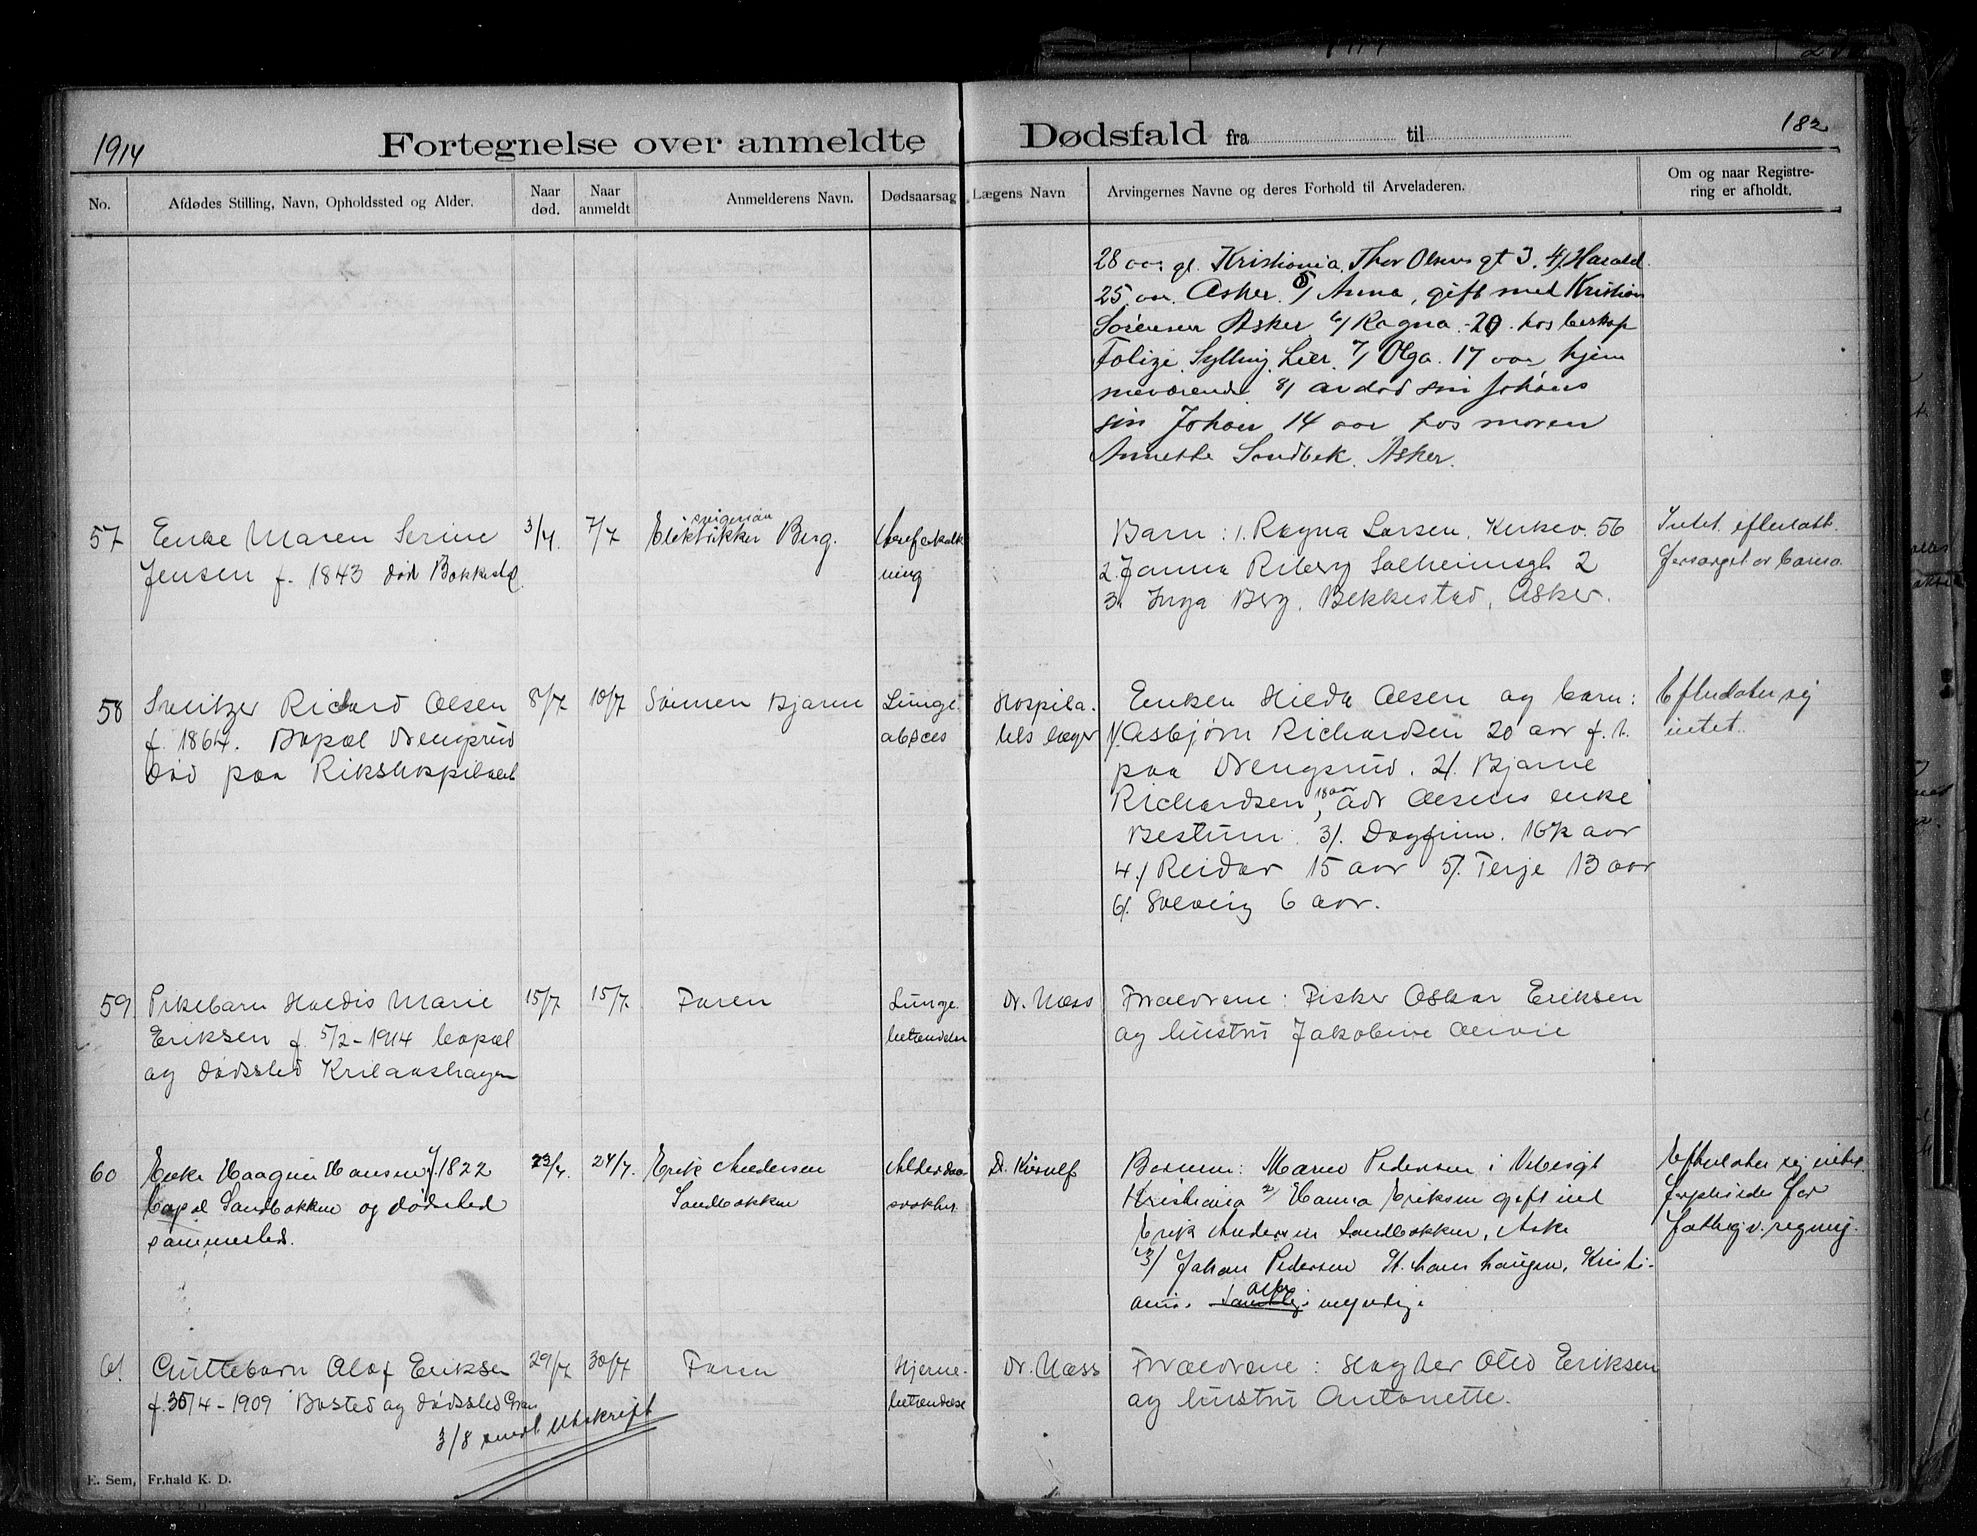 1914 Fortegnelse over anmeldte Dødsfald fra til 182
No. Afdødes Stilling, Navn, Opholdssted og Alder. Naar død. Naar anmeldt Anmelderens Navn. Dødsaarsag Lægens Navn Arvingernes Navne og deres Forhold til Arveladeren. Om og naar Registrering er afholdt.
28 aar gl. Kristiania, Thor Olsens gt 3. 4/ Harald
25 aar. Asker. 5/ Anna, gift med Kristian
Sørensen Asker 6/ Ragna. 20. hos
Sylling, Lier. 7/ Olga. 17 aar hjem
meværende 8/ avdød søn Johans
søn Johan 14 aar hos moren
Annette Sandbek. Asker.
57 Enke Maren Serine 3/7. 7/7 Elektrikker svigersøn Berg. Aareforkalk
Jensen f. 1843 død Bekkestd. ning
Barn: 1. Ragna Larsen, Kirkev. 56
2. Janna Riberg Solheimsgt 2
3. Inga Berg, Bekkestad, Asker.
Intet efterlatt.
forsørget av barna
58 Snitzer Richard Olsen 8/7 10/7 Sønnen Bjarne Lunge Hospita-
f. 1864. Bopæl Drengsrud absces lets læger
død paa Rikshospitalet
Enken Hilda Olsen og barn:
1/. Asbjørn Richardsen 20 aar f. t.
paa Drengsrud. 2/. Bjarne
Richardsen, 18 aar adr Olsens enke
Bestum. 3/. Dagfinn. 16½ aar
4./ Reidar 15 aar 5/. Terje 13 aar
6/. Solveig 6 aar.
Efterlater ei
intet.
59 Pikebarn Haldis Marie 15/7 15/7. Faren Lunge Dr. Næss
Eriksen f. 5/2-1914 bopæl betændelse
og dødssted
Forældrene: Fisker Oskar Eriksen
og hustru Jakobine
60 Enke Haagine Hansen f. 1822 23/7. 24/7. Erik Andersen Alderdoms
Bopæl Sandbakken og dødsted Sandbakken svakhet
sammesteds.
Barnene: Maren Pedersen i Vibesgt
Kristiania 2/ Hanna Eriksen gift med
Erik Andersen Sandbakken, Aske
3/ Johan Pedersen St. hans haugen, Kristi-
ania. alle myndig.
Efterlater ei intet.
for
fattigv. regning.
61. Guttebarn Olaf Eriksen 29/7 30/7 Faren Hjerne- Dr. Næss
f. 30/4-1909 Bosted og dødssted betændelse
Forældrene: Oteo Eriksen
og hustru Antonette.
3/8 sendt utskrift
E. Sem, Fr.hald K. D.